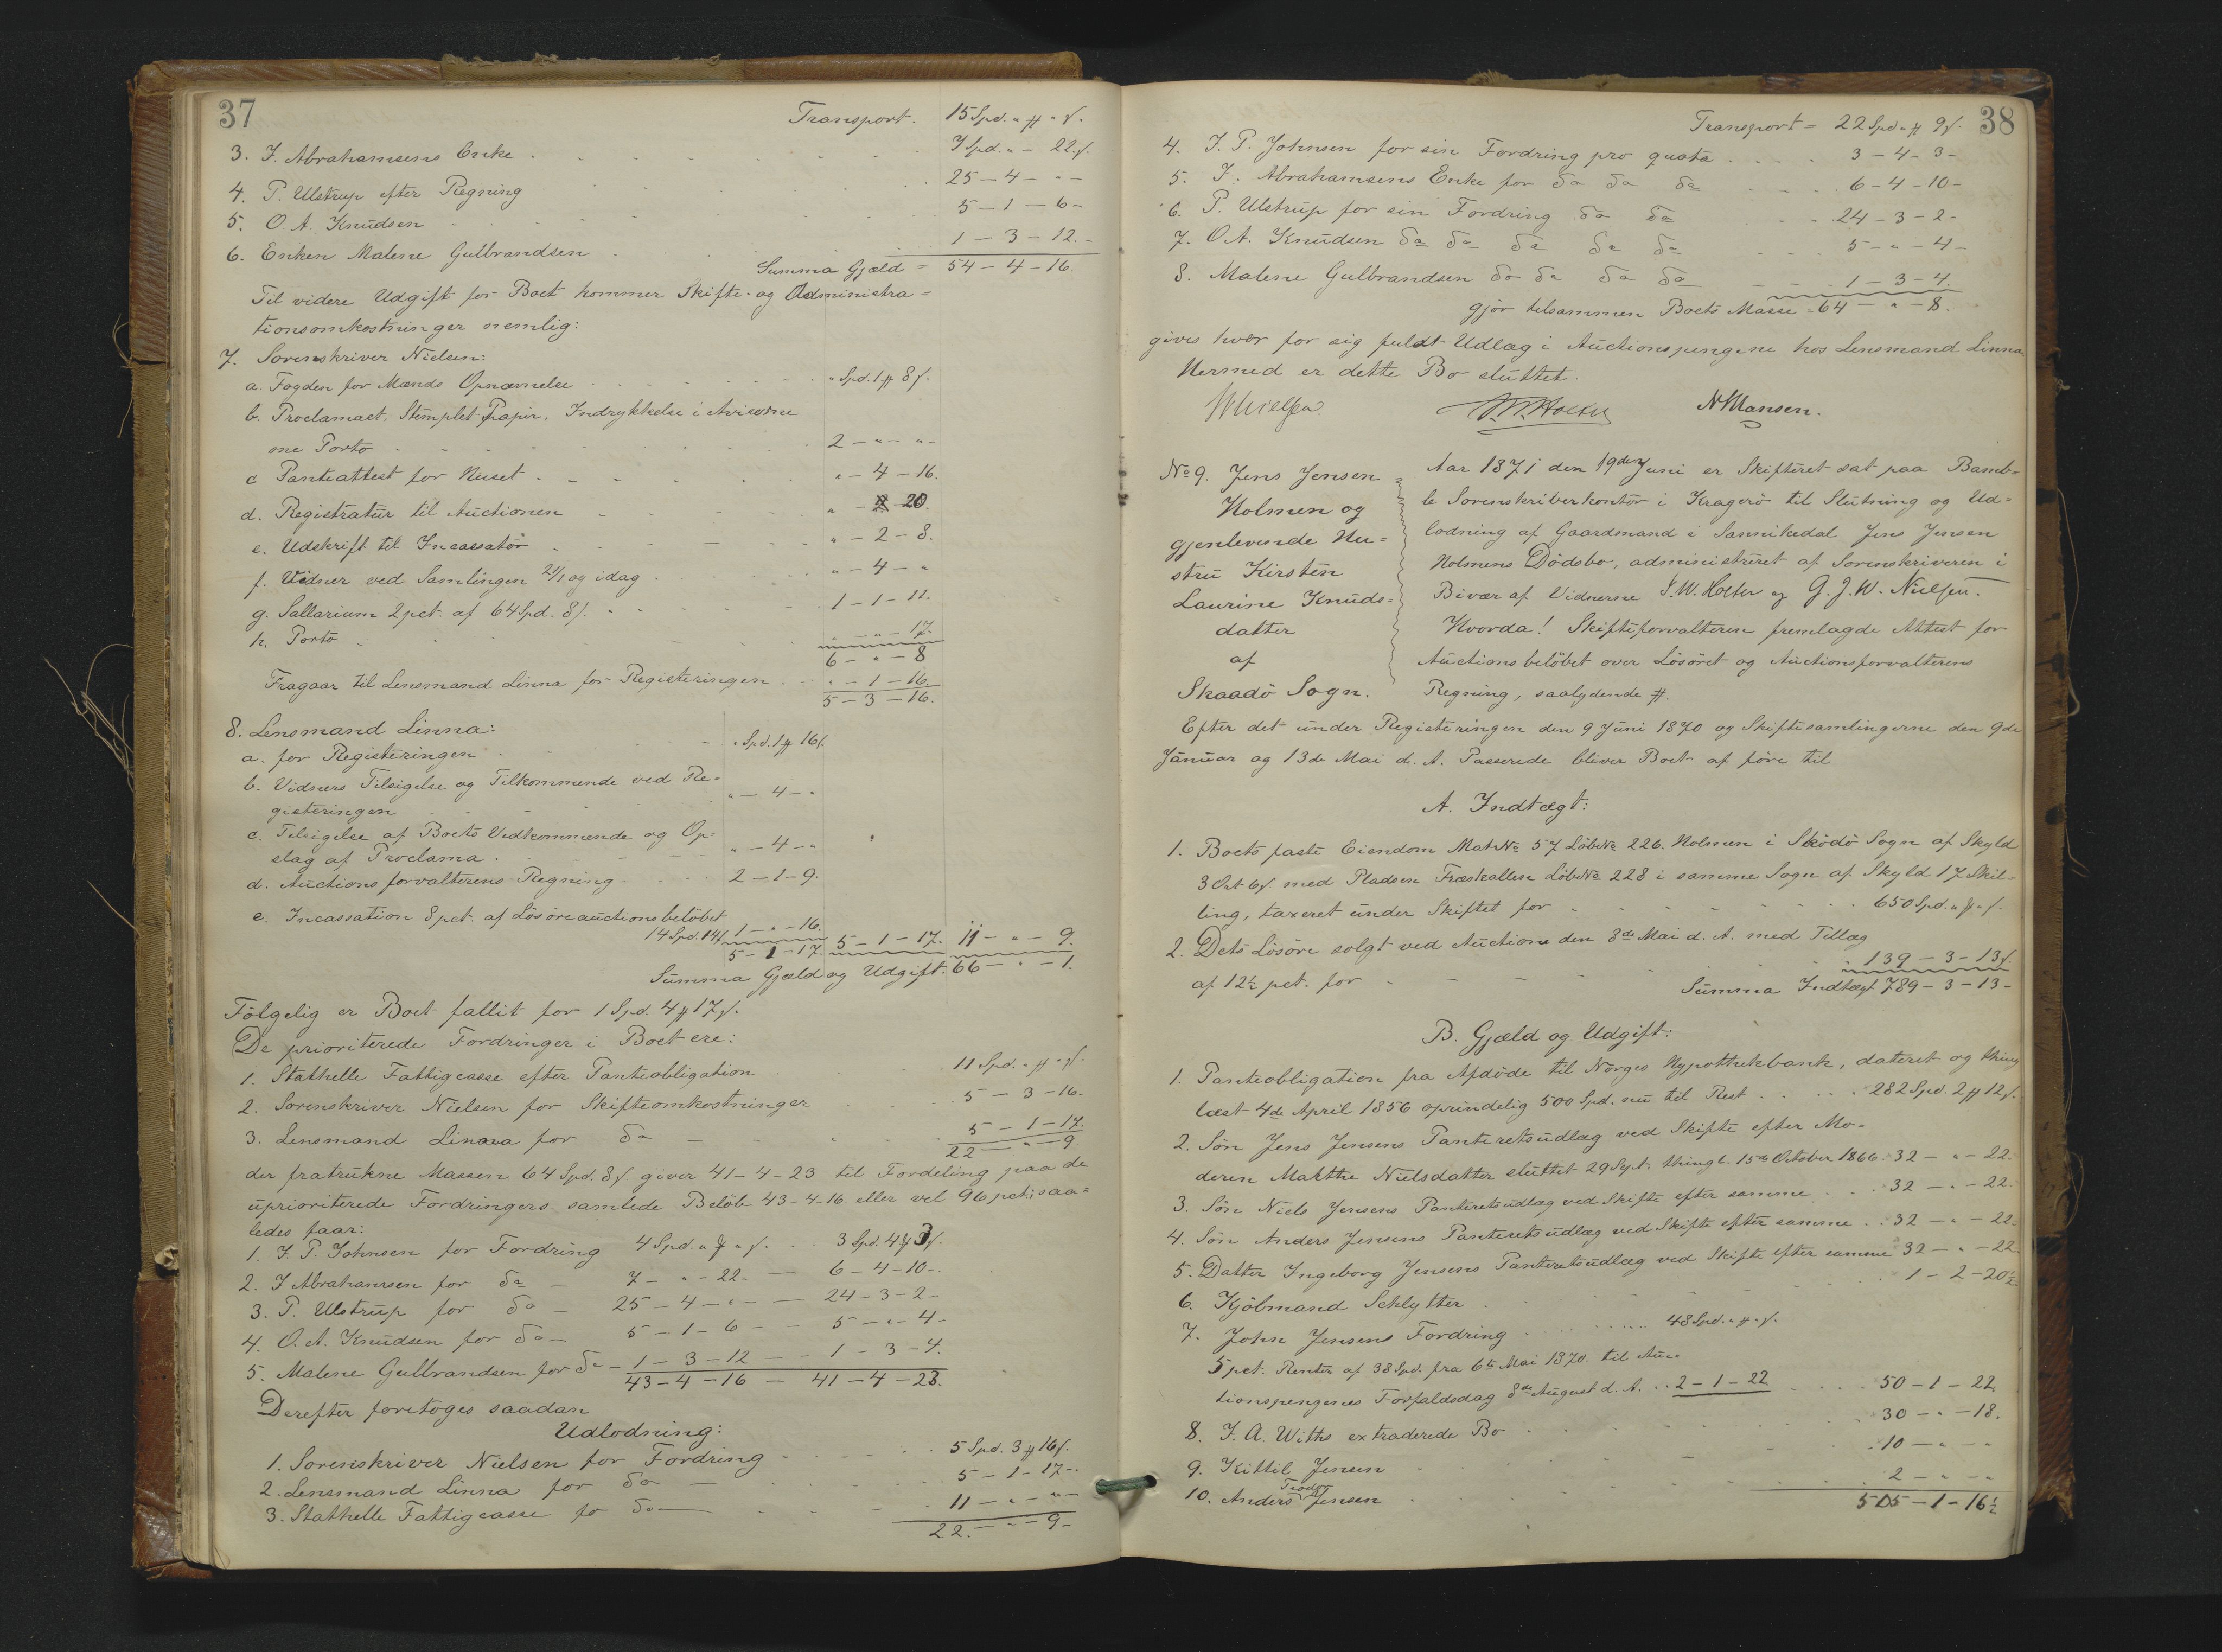 37
Transport. 15 Spd. " # " ß.
3. J. Abrahamsens Enke . . . 7 Spd. " - 22 ß.
4. P. Ulstrup efter Regning . . . 25 - 4 - " -
5. O. A. Knudsen . . . 5 - 1 - 6 -
6. Enken Malene Gulbrandsen . . . 1 - 3 - 12. -
Summa Gjæld = 54 - 4 - 16.
Til videre Udgift for Boet kommer Skifte- og Administra=
tionsomkostninger nemlig:
7. Sorenskriver Nielsen:
a. Fogden for Mænds Opnævnelse . . . " Spd. 1 # 8 ß.
b. Proclamaet, Stemplet Papir, Indrykkelse i Aviserne
me Porto . . . 2 - " - " -
c Panteattest for Huset . . . " - 4 - 16.
d. Registratur til Auctionen . . . " - 20.
e. Udskrift til Incassator . . . " - 2 - 8.
f. Vidner ved Samlingen 21/1 og idag . . . " - 4 - "
g. Sallarium 2 pct. af 64 Spd. 8 ß. . . . 1 - 1 - 11.
h. Porto . . . " - " - 17.
6 - " - 8
Fragaar til Lensmand Linna for Registeringen . . " - 1 - 16.
5 - 3 - 16.
8. Lensmand Linna:
a. for Registeringen . . . " Spd. 1 # 16 ß.
b. Vidners Tilsigelse og Tilkommende ved Re=
gisteringen . . . " - 4 - "
c. Tilsigelse af Boets Vedkommende og Op=
slag af Proclama . . . " - 4 - "
d. Auctionsforvalterens Regning . . . 2 - 1 - 9.
e. Incassation 8 pct. af Lösöreauctionsbelöbet
14 Spd. 14 ß. 1 - " - 16.
5 - 1 - 17. 5 - 1 - 17. 11 - " - 9.
Summa Gjæld og Udgift: 66 - " - 1.
Fölgelig er Boet fallit for 1 Spd. 4 # 17 ß.
De prioriterede Fordringer i Boet ere:
1. Stathelle Fattigcasse efter Panteobligation . . . 11 Spd. " # " ß.
2. Sorenskriver Nielsen for Skifteomkostninger . . . 5 - 3 - 16.
3. Lensmand Linna for do - . . . 5 - 1 - 17.
22 - " - 9
der fratrukne Massen 64 Spd. 8 ß giver 41 - 4 - 23 til Fordeling paa de
uprioriterede Fordringers samlede Belöb 43 - 4 - 16 eller vel 96 pct; saa=
ledes faar:
1. J. P. Johnsen for Fordring 4 Spd. " # " ß. . . 3 Spd. 4 # 3 ß.
2. J Abrahamsen for do - 7 - " - 22. - 6 - 4 - 10 -.
3. P. Ulstrup for do - 25 - 4 - " - - 24 - 3 - 2 -
4. O. A. Knudsen for do - 5 - 1 - 6 - - 5 - " - 4 -
5. Malene Gulbrandsen for do - 1 - 3 - 12 - - 1 - 3 - 4.
43 - 4 - 16 - 41 - 4 - 23.
Derefter foretoges saadan
Udlodning:
1. Sorenskriver Nielsen for Fordring - . . . 5 Spd. 3 # 16 ß.
2. Lensmand Linna for do - . . . 5 - 1 - 17 -.
3. Stathelle Fattigcasse fo do - . . . 11 - " - " -
22. - " - 9 -
38
Transport = 22 Spd " # 9 ß.
4. J. P. Johnsen for sin Fordring pro quota . . . . 3 - 4 - 3 -
5. J. Abrahamsens Enke for do do do . . . . 6 - 4 - 10 -
6. P. Ulstrup for sin Fordring do do . . 24 - 3 - 2 -
7. O. A. Knudsen do do do do do . . . . 5 - " - 4 -
8. Malene Gulbrandsen do do do do - - . . 1 - 3 - 4.
gjör tilsammen Boets Masse = 64 - " - 8.
gives hver for sig fuldt Udlæg i Auctionspengene hos Lensmand Linna.
Hermed er dette Bo sluttet.
WNielsen. S.W.Holter NHansen.
No 9. Jens Jensen
Holmen og
gjenlevende Hu=
stru Kirsten
Laurine Knuds=
datter
af
Skaadö Sogn.
Aar 1871 den 19de Juni er Skifteret sat paa Bamb=
le Sorenskriverkontor i Kragerö til Slutning og Ud=
lodning af Gaardmand i Sannikedal Jens Jensen
Holmens Dödsbo, administreret af Sorenskriveren i
Bivær af Vidnerne S. W. Holter og G. J. W. Nielsen.
Hvorda! Skifteforvalteren fremlagde Attest for
Auctionsbelöbet over Lösöret og Auctionsforvalterens
Regning, saalydende #.
Efter det under Registeringen den 9 Juni 1870 og Skiftesamlingerne den 9de
Januar og 13de Mai d. A. Passerede bliver Boet at före til
A. Indtægt:
1. Boets faste Eiendom Mat No 57 Löb No 226. Holmen i Sködö Sogn af Skyld
3 Ort 6 ß. med Pladsen Træskallen Löb No 228 i samme Sogn af Skyld 17 Skil-
ling, taxeret under Skiftet for - . . . 650 Spd. " # " ß.
2. Dets Lösöre solgt ved Auction den 8de Mai d. A. med Tillæg
af 12½ pct. for - . . . 139 - 3 - 13 ß.
Summa Indtægt 789 - 3 - 13 -
B. Gjæld og Udgift:
1. Panteobligation fra Afdöde til Norges Hypothekbank, dateret og thing
læst 4de April 1856 oprindelig 500 Spd. nu til Rest . . . . 282 Spd. 2 # 12 ß.
2. Sön Jens Jensens Panteretsudlæg ved Skifte efter Mo=
deren Makthe Nielsdatter sluttet 29 Sept, thingl. 15de October 1866. 32 - " - 22.
3. Sön Niels Jensens Panteretsudlæg ved Skifte efter samme . . . 32 - " - 22.
4. Sön Anders Jensens Panteretsudlæg ved Skifte efter samme . . 32 - " - 22.
5. Datter Ingeborg Jensens Panteretsudlæg ved Skifte efter samme 32 - " - 22.
6. Kjöbmand Schlytter . . . 1 - 2 - 20½.
7. John Jensens Fordring . . . 48 Spd. " # " ß.
5 pct. Renter af 38 Spd. fra 6te Mai 1870 til Auc=
tionspengenes Forfaldsdag 8de August d. A. . . 2 - 1 - 22 . . . . 50 - 1 - 22.
8. J. A. Withs extraderede Bo . . . 30 - " - 18.
9. Kittil Jensen . . . 10 - " - "
10. Anders Jensen . . . 2 - " - "
505 - 1 - 16½